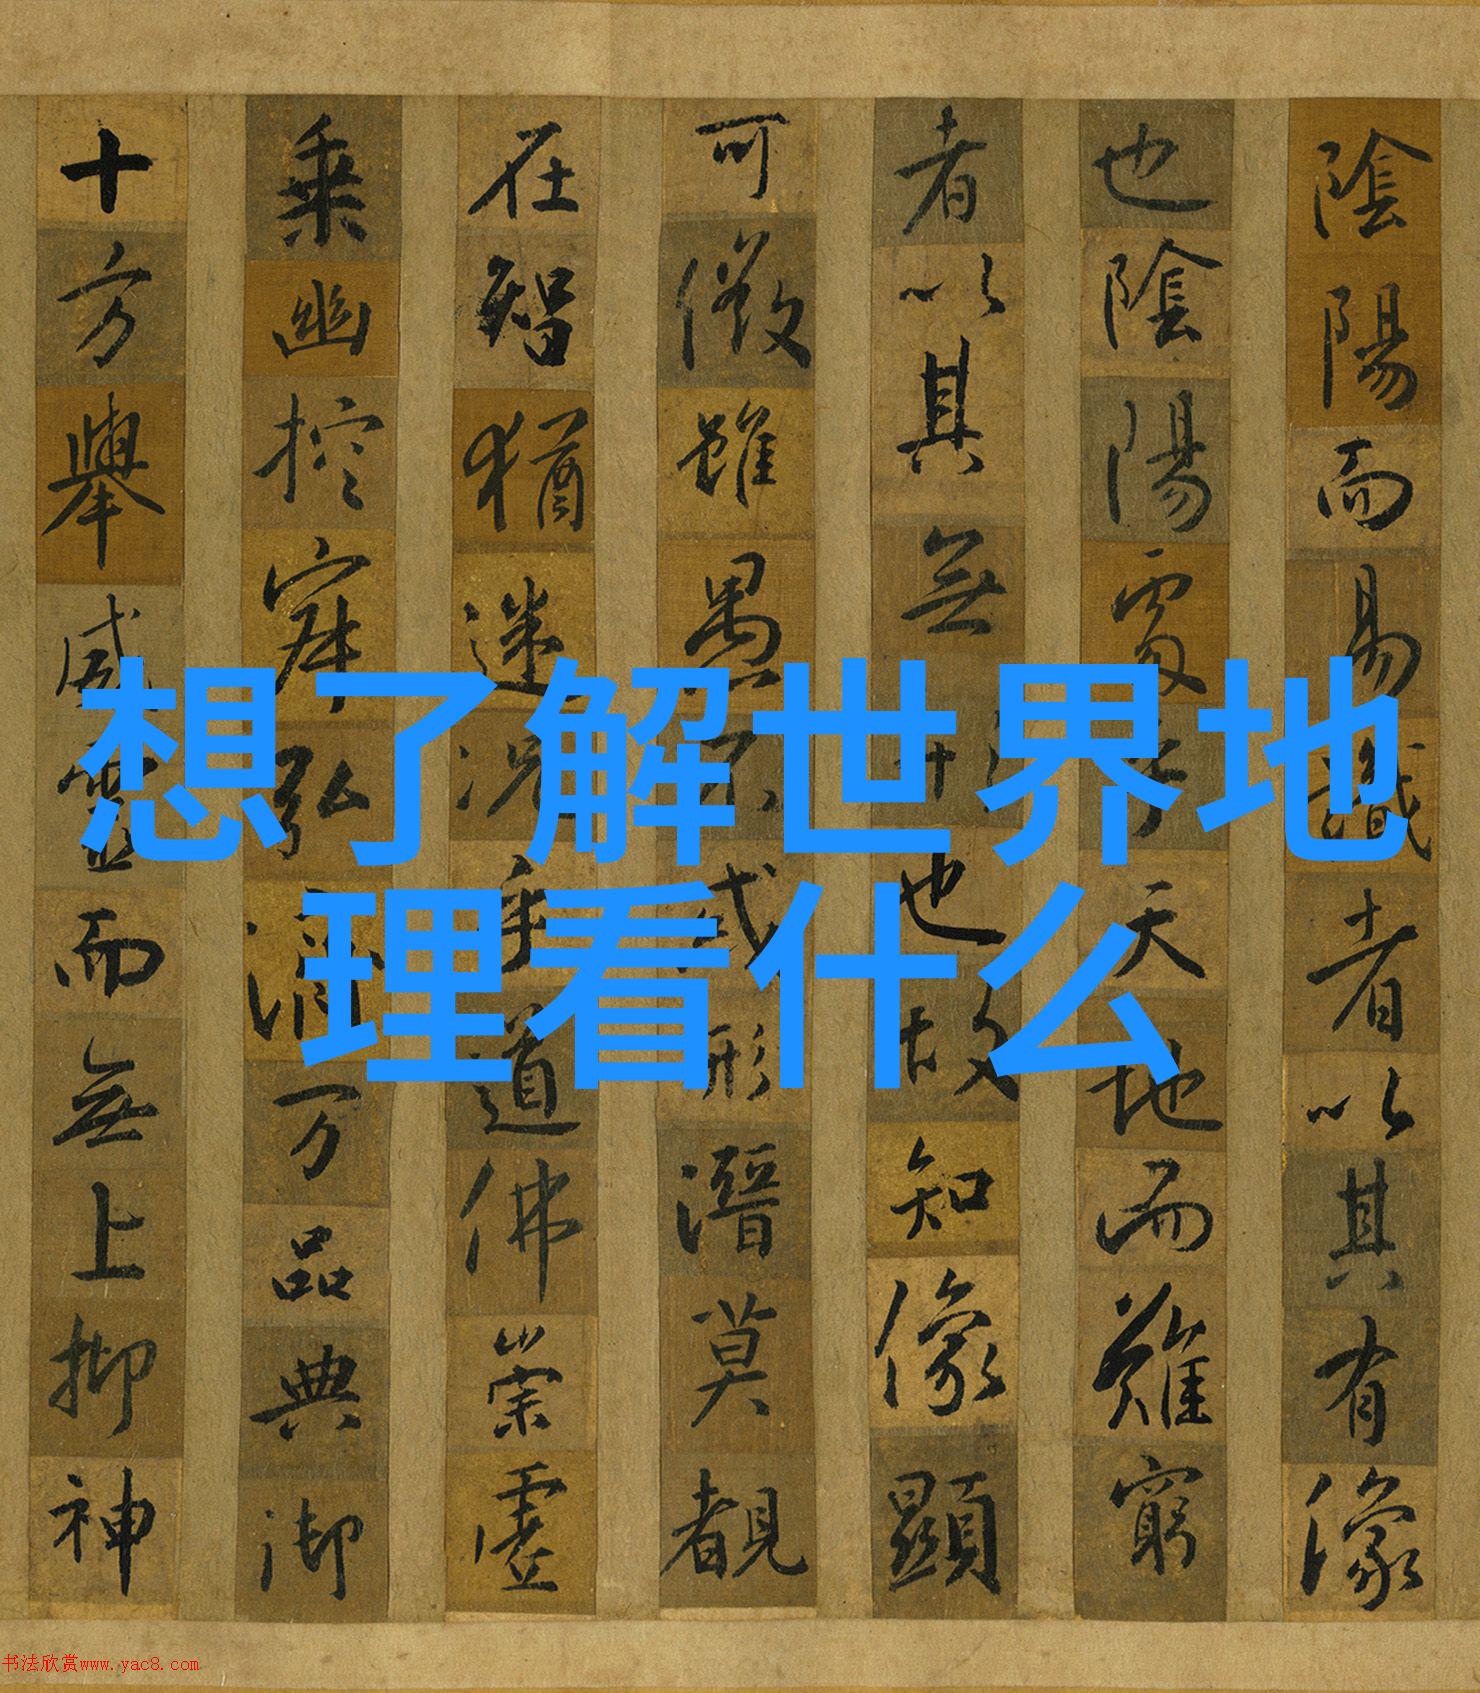 陰陽而易識者以其有像
也陰陽處乎天地而難窮
者以其無形也故知像顯
可徵雖愚不惑形潛莫覩
在智猶迷況乎道佛崇虛
乘幽控寂弘濟万品典御
十方舉威靈而無上抑神
想了解世界地
理看什么
书法欣赏www.yac8.com